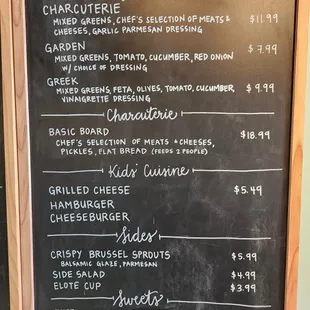 CHARCUTERIE $11.99
MIXED GREENS, CHEF'S SELECTION OF MEATS &
CHEESES, GARLIC PARMESAN DRESSING
GARDEN $7.99
MIXED GREENS, TOMATO, CUCUMBER, RED ONION
W/ CHOICE OF DRESSING
GREEK $9.99
MIXED GREENS, FETA, OLIVES, TOMATO, CUCUMBER,
VINAIGRETTE DRESSING
Charcuterie
BASIC BOARD $18.99
CHEF'S SELECTION OF MEATS + CHEESES,
PICKLES, FLAT BREAD (FEEDS 2 PEOPLE)
Kids' Cuisine
GRILLED CHEESE $5.49
HAMBURGER
CHEESEBURGER
Sides
CRISPY BRUSSEL SPROUTS $5.99
BALSAMIC GLAZE, PARMESAN
SIDE SALAD $4.99
ELOTE CUP $3.99
Sweets